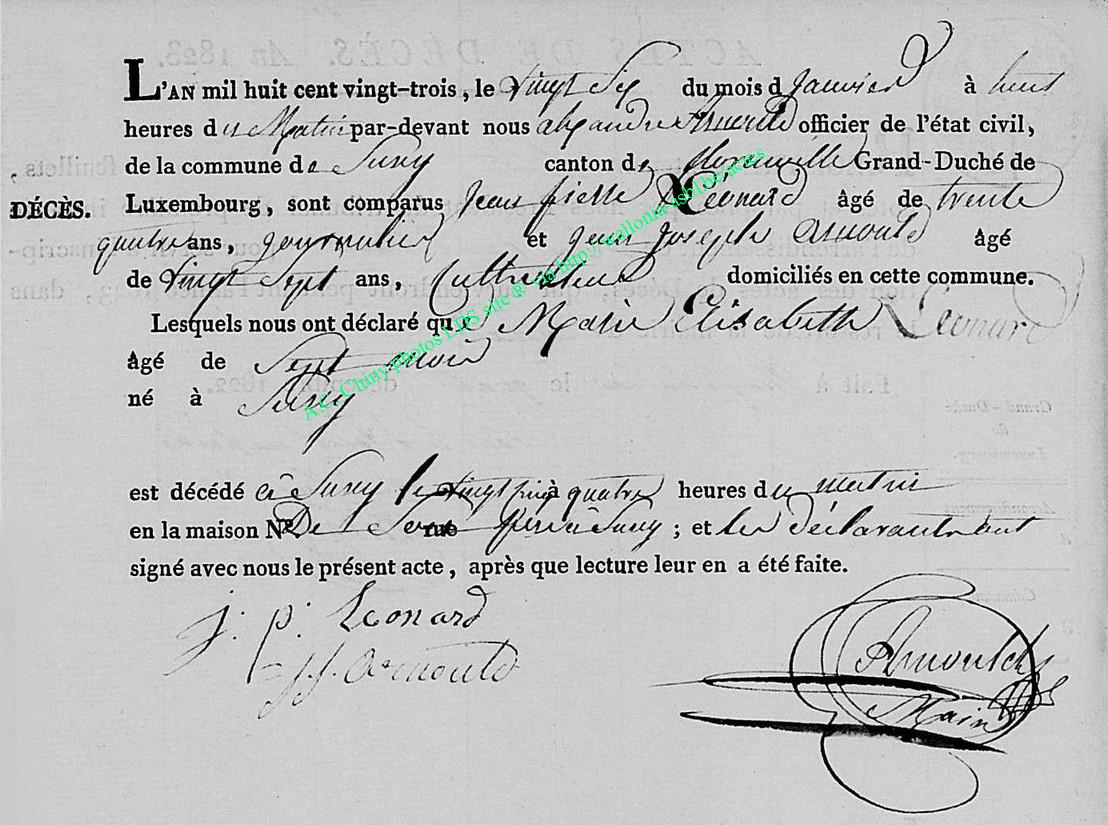 L'AN mil huit cent vingt-trois, le vingt six du mois d janvier à huit
heures du Matin par-devant nous alexandre Arnould officier de l'état civil,
de la commune de Suny canton de Grand-Duché de
DÉCÈS. Luxembourg, sont comparus Jean pierre Leonard âgé de trente
quatre ans, journalier et jean joseph arnould âgé
de vingt sept ans, Cultivateur domiciliés en cette commune.
Lesquels nous ont déclaré que Marie Elisabeth Leonard
âgé de Sept mois
né à Suny
est décédé à Suny le vingt à quatre heures du matin
en la maison N° De Son rue pere à Suny ; et les déclarants ont
signé avec nous le présent acte, après que lecture leur en a été faite.
j. p. Leonard
j j arnould
Arnould